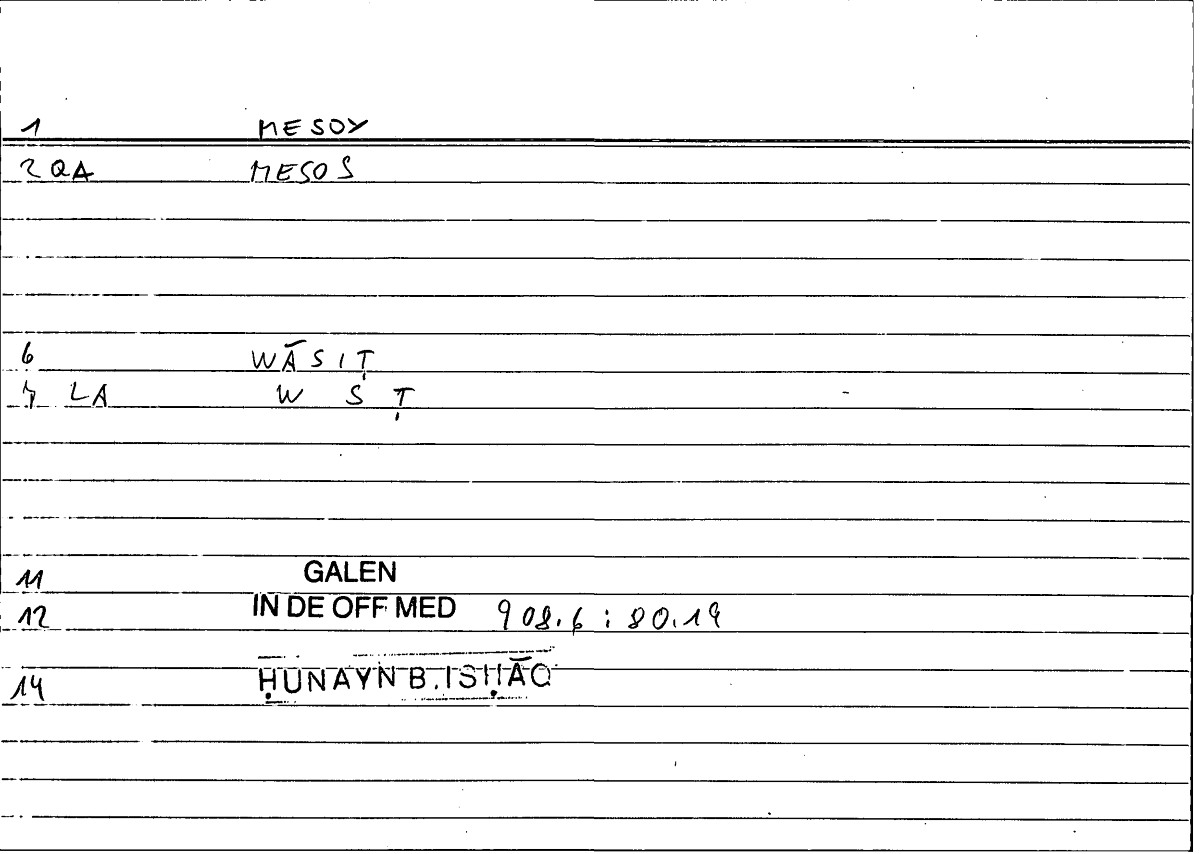 1 MESOY
2 QA MESOS
6 WĀSIṬ
7 LA W S Ṭ
11 GALEN
12 IN DE OFF MED 908.6 : 80.19
14 ḤUNAYN B. ISḤĀQ